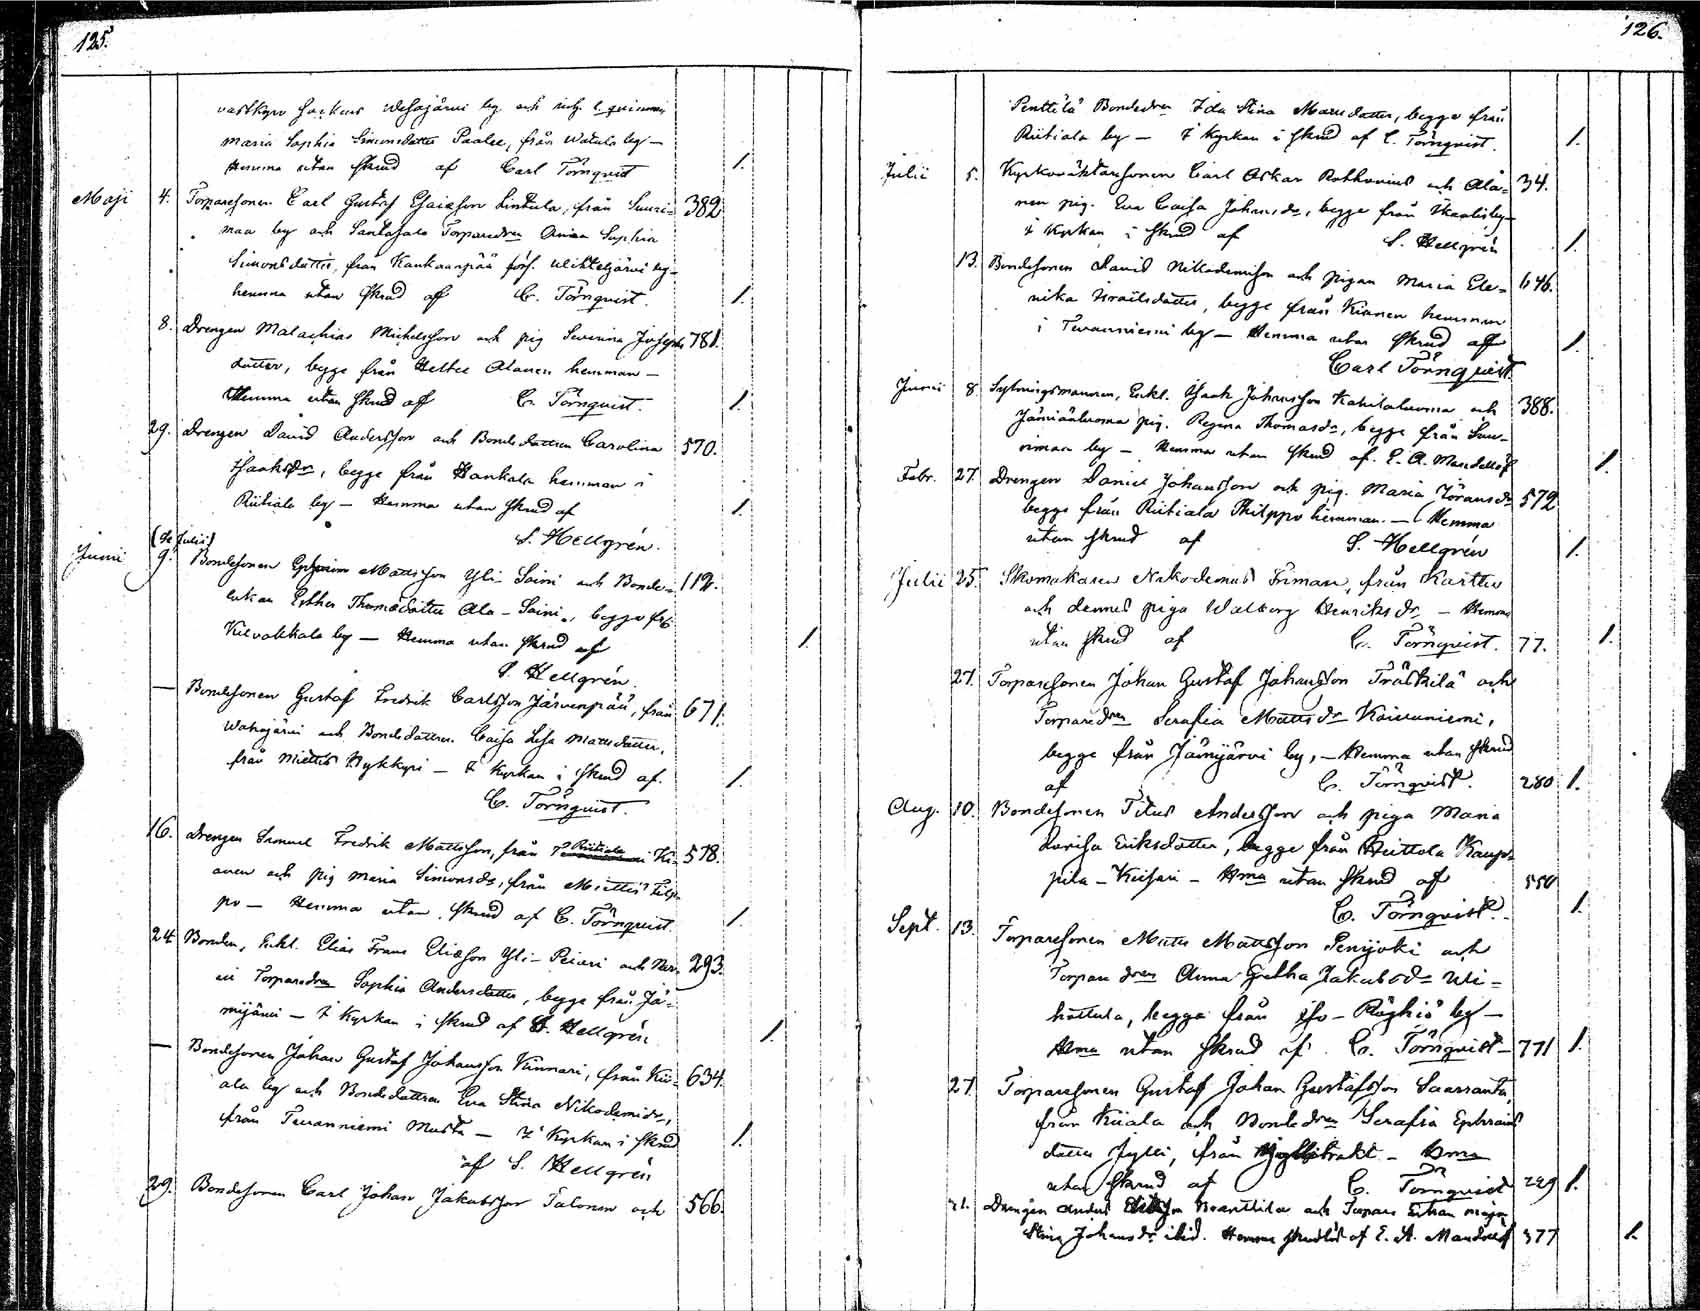 125.
Maria Sophia Simonsdatter Paalee, från Watula by —
Hemma utan skrud af Carl Törnqvist 1.
Maji 4. Torparesonen Carl Gustaf Esaiæson Lintula, från Suuri- 382
maa by och Torparedren Anna Sophia
Simonsdatter, från Kankaanpää förs. by —
hemma utan skrud af C. Törnqvist. 1.
8. Drengen Malachias Michelsson och pig Severina Josephs 781.
datter, begge från Heltee Alanen hemman —
Hemma utan skrud aff C. Törnqvist. 1.
29. Drengen David Andersson och Bondedattren Carolina 570.
Isaaksdr, begge från Hankala hemman i
Riitiala by — Hemma utan skrud af 1.
S. Hellgrén.
(se Julii)
Junii 9. Bondesonen Ephraim Mattsson Yli-Saini och Bonde- 112.
enkan Esther Thomædatter Ala-Saini, begge fr.
Kilvakkala by — Hemma utan skrud af 1.
S. Hellgrén.
— Bondesonen Gustaf Fredrik Carlsson Järvenpää, från 671.
Wahojärvi och Bondedattren Caisa Lisa Mattsdatter,
från Miettis Nykkyri — I Kyrkan i skrud af. 1.
C. Törnqvist.
16. Drengen Samuel Fredrik Mattsson, från Riitiala Ki- 578.
anen och pig Maria Simonsdr, från Miettis Filp-
po — Hemma utan skrud af C. Törnqvist. 1.
24 Bonden, Enkl. Elias Frans Eliæson Yli-Peiari och 293.
Torparedren Sophia Andersdatter, begge från Jä-
mijärvi — I Kyrkan i skrud af S. Hellgrén 1.
— Bondesonen Johan Gustaf Johansson Vännäri, från Kii- 634.
ala by och Bondedattren Eva Stina Nikodemidr,
från Tevaniemi Musta — I Kyrkan i skrud 1.
af S. Hellgrén
29. Bondesonen Carl Johan Jakobsson Talonen och 566.
126.
Penttilä Bondedren Ida Stina Mattsdatter, begge från
Riitiala by — I Kyrkan i skrud af C. Törnqvist. 1.
Julii 5. Kyrkoväktaresonen Carl Oskar Rothovius och Ala- 34.
nen pig. Eva Caisa Johansdr, begge från Ikaalis by —
i Kyrkan i skrud af S. Hellgrén 1.
13. Bondesonen David Nikodemison och pigan Maria Ele- 646.
nika Israelsdatter, begge från Kianen hemman
i Tevanniemi by — Hemma utan skrud aff 1.
Carl Törnqvist.
Junii 8. Sytningsmannen, Enkl. Isaak Johansson och 388.
pig. Regina Thomasdr, begge från Suu-
rimaa by — Hemma utan skrud af. E. A. Mandellöf 1.
Febr. 27. Drengen Daniel Johansson och pig. Maria Göransdr 572
begge från Riitiala Philppo hemman. — Hemma
utan skrud af S. Hellgrén 1.
Julii 25. Skomakaren Nikodemus Friman, från Karttu
och dennes piga Walborg Henriksdr. — Hemma
utan skrud af C. Törnqvist. 77. 1.
27. Torparesonen Johan Gustaf Johansson Träskilä och
Torparedren Serafia Mattsdr Koivuniemi,
begge från Jämijärvi by, — Hemma utan skrud
af C. Törnqvist. 280 1.
Aug. 10. Bondesonen Titus Andersson och piga Maria
Lovisa Eriksdatter, begge från Heittola Kaup-
pila-Keisari — Hma utan skrud af 550
C. Törnqvist. 1.
Sept. 13. Torparesonen Matts Mattsson Penijoki och
Torparedren Anna Gretha Jakobsdr
begge från Iso-Röyhiö by —
Hma utan skrud af C. Törnqvist — 771 1.
27. Torparesonen Gustaf Johan Gustafsson Saarranta,
från Kiiala och Bondedren Serafia Ephraims
datter Jylli, från — Hma
utan skrud af C. Törnqvist 229 1.
Drengen Anders och Torpare Enkan Maja
Stina Johansdr ibid. Hemma skrudlös af E. A. Mandellöf 377 1.